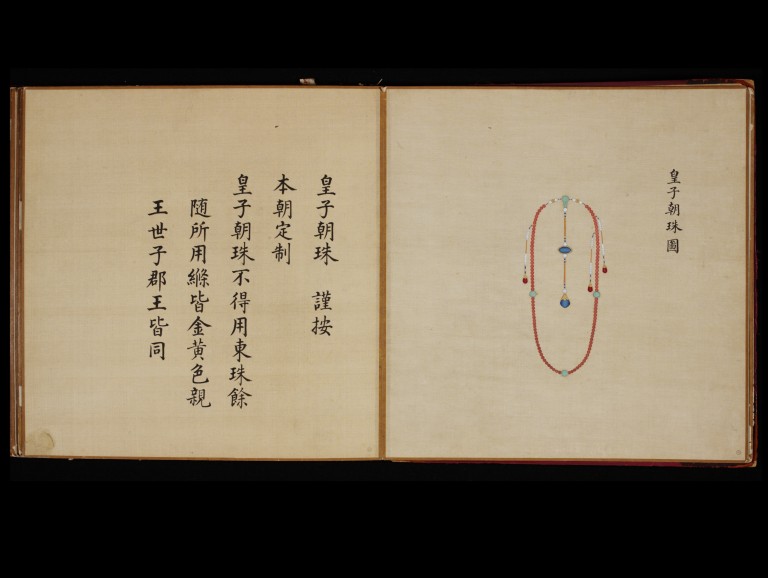 皇子朝珠圖
皇子朝珠 謹按
本朝定制
皇子朝珠不得用東珠餘
隨所用絛皆金黃色親
王世子郡王皆同